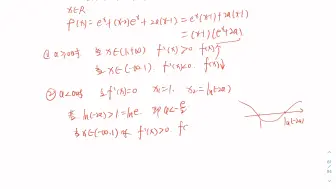 x∈R
f'(x)=e^x+(x-2)e^x+2a(x-1)=e^x(x-1)+2a(x-1)
=(x-1)(e^x+2a)
① a≥0时. 当x∈(1,+∞) f'(x)>0 f(x)↑
当x∈(-∞.1) f'(x)<0 f(x)↓
② a<0时 令f'(x)=0 x₁=1. x₂=ln(-2a)
1° ln(-2a)>1=lne. 即a<-e/2
当x∈(-∞.1)时 f'(x)>0. f(
1 ln(-2a)